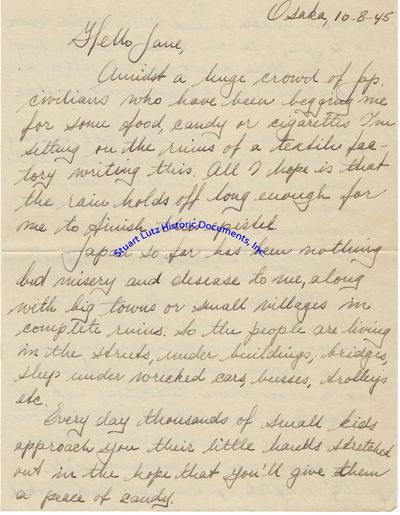 Osaka, 10-8-45
Hello Jane,
Amidst a huge crowd of Jap.
civilians who have been begging me
for some food, candy or cigarettes I'm
sitting on the ruins of a textile fac-
tory writing this. All I hope is that
the rain holds off long enough for
me to finish this epistel.
Stuart Lutz Historic Documents, Inc.
Japan so far has been nothing
but misery and disease to me, along
with big towns or small villages in
complete ruins. So the people are living
in the streets, under buildings, bridges,
sleep under wrecked cars, busses, trolleys
etc.
Every day thousands of small kids
approach you their little hands stretched
out in the hope that you'll give them
a peace of candy.